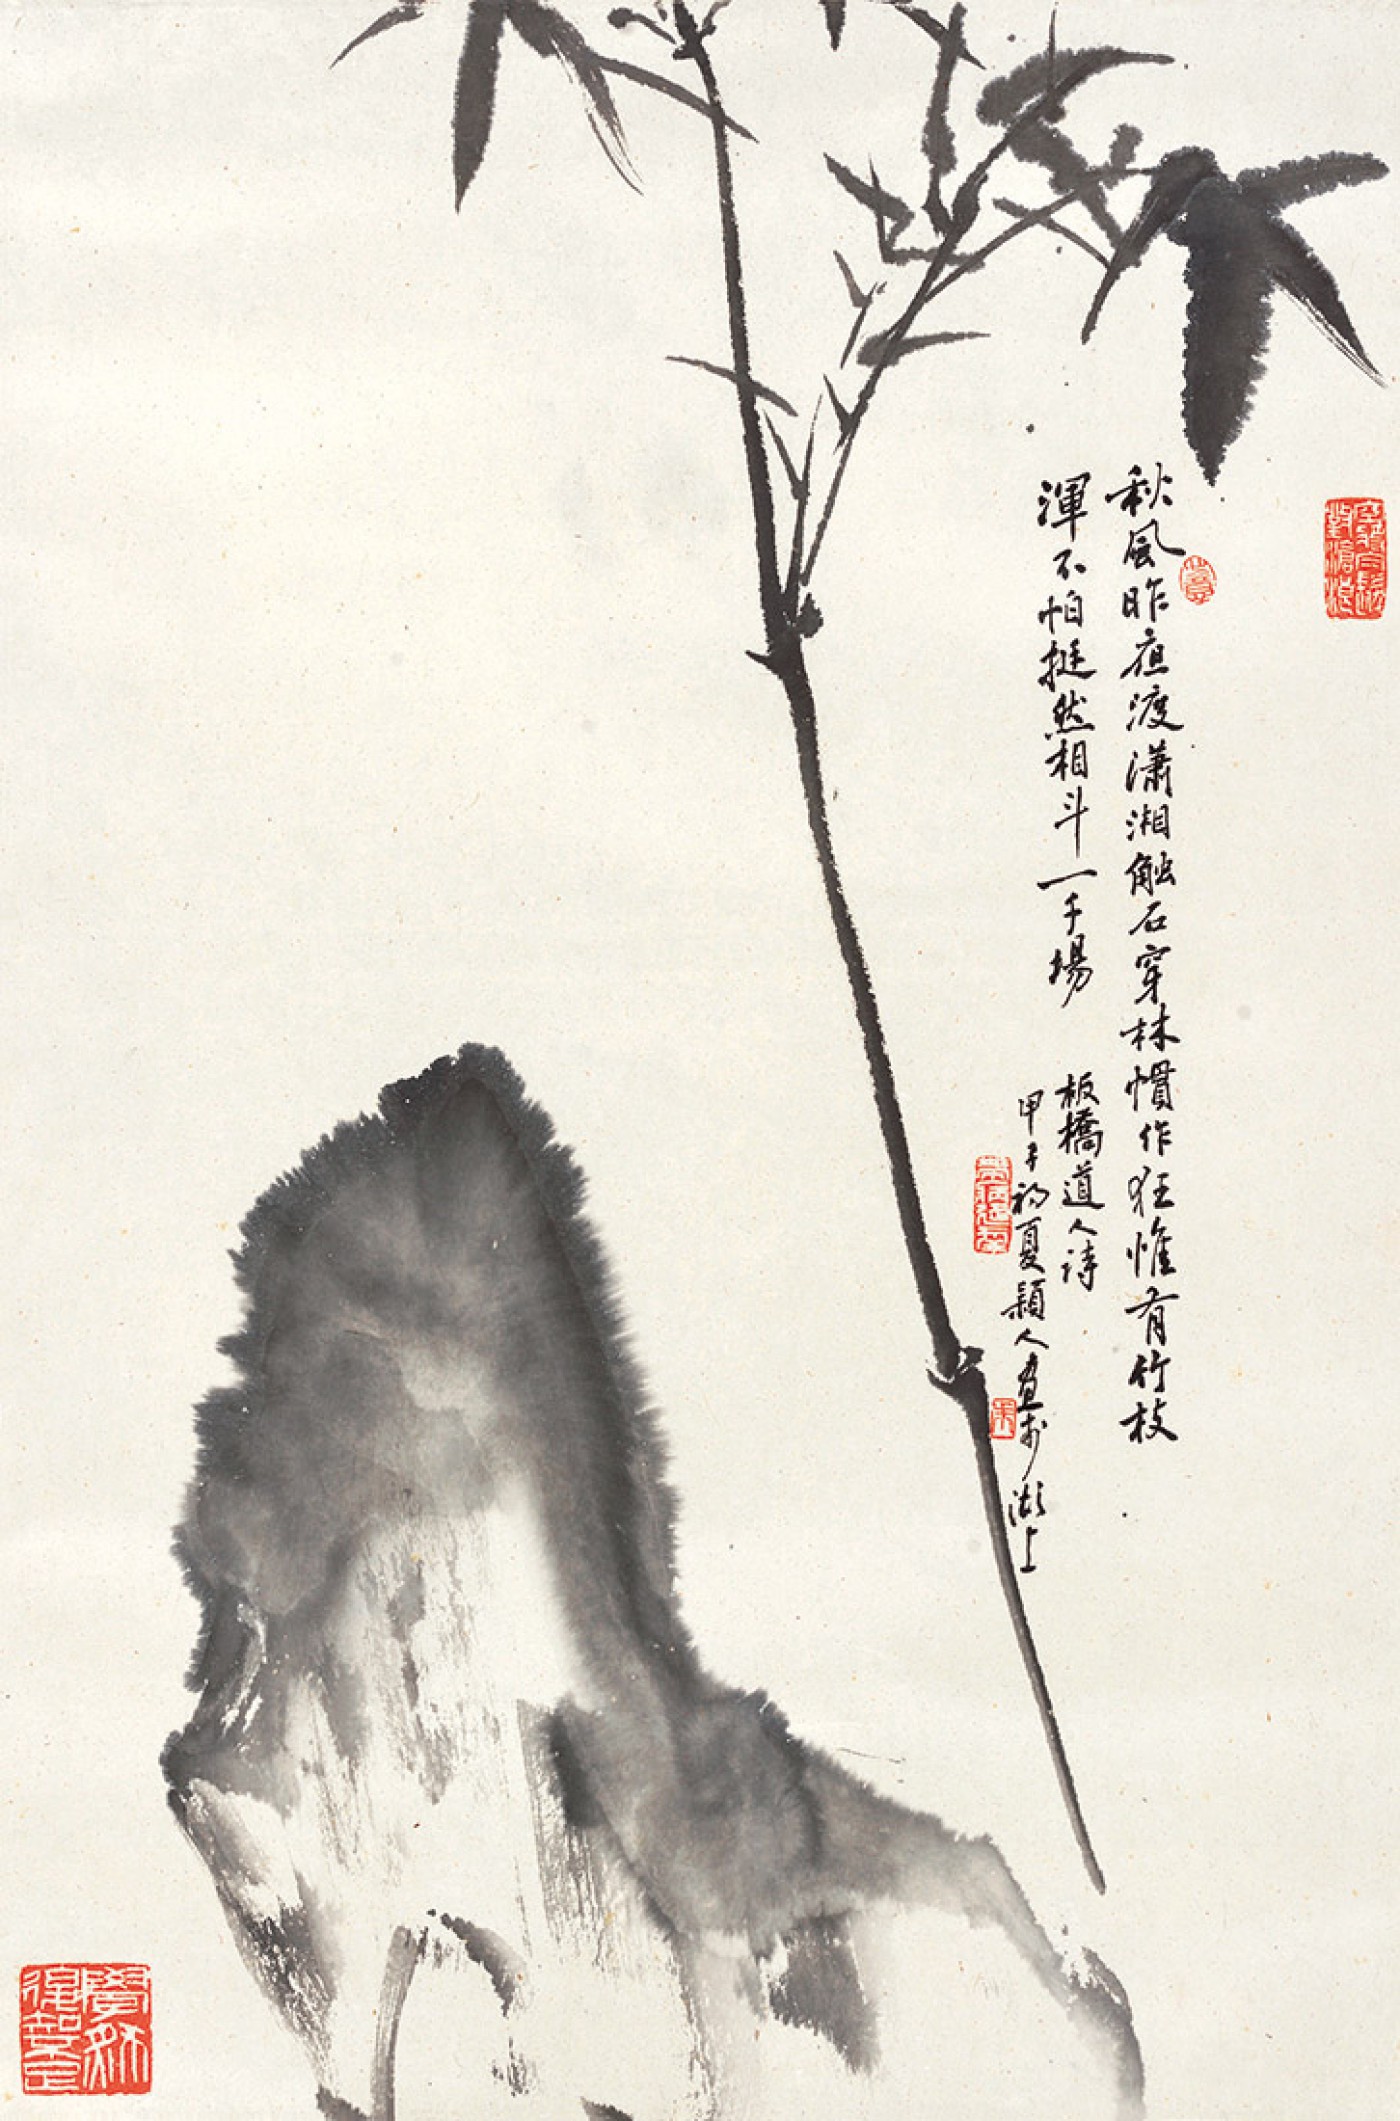 秋風昨夜渡瀟湘触石穿林慣作狂惟有竹枝
渾不怕挺然相斗一千場
板橋道人詩
甲子初夏穎人畫於湖上